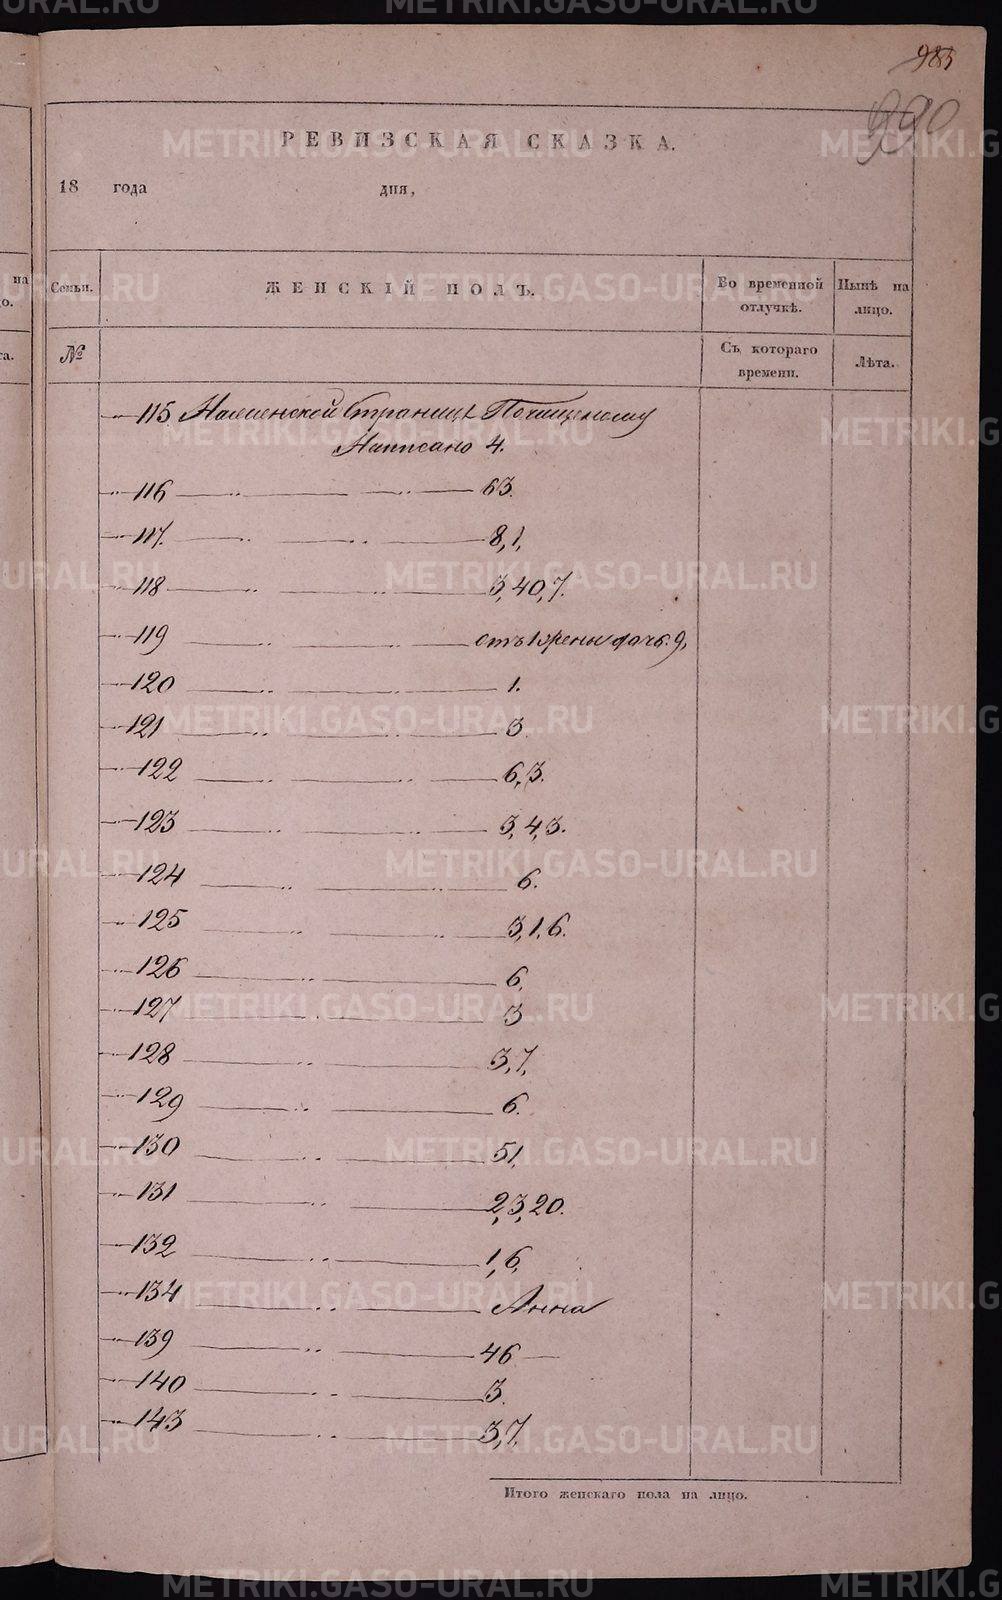 983
990
РЕВИЗСКАЯ СКАЗКА.
18 года дня,
на
Семьи. ЖЕНСКІЙ ПОЛЪ. Во временной отлучкѣ. Нынѣ на лицо.
№ Съ котораго времени. Лѣта.
115 страницѣ Почищеному
Написано 4.
116 63.
117. 8, 1,
118 3, 40, 7.
119 отъ дочь. 9,
120 1.
121 3
122 6, 3.
123 3, 4, 3.
124 6.
125 3, 1, 6.
126 6,
127 3
128 3, 7,
129 6.
130 51,
131 2, 3, 20.
132 1, 6,
134 Анна
139 46
140 3.
143 3, 7,
Итого женскаго пола на лицо.
METRIKI.GASO-URAL.RU